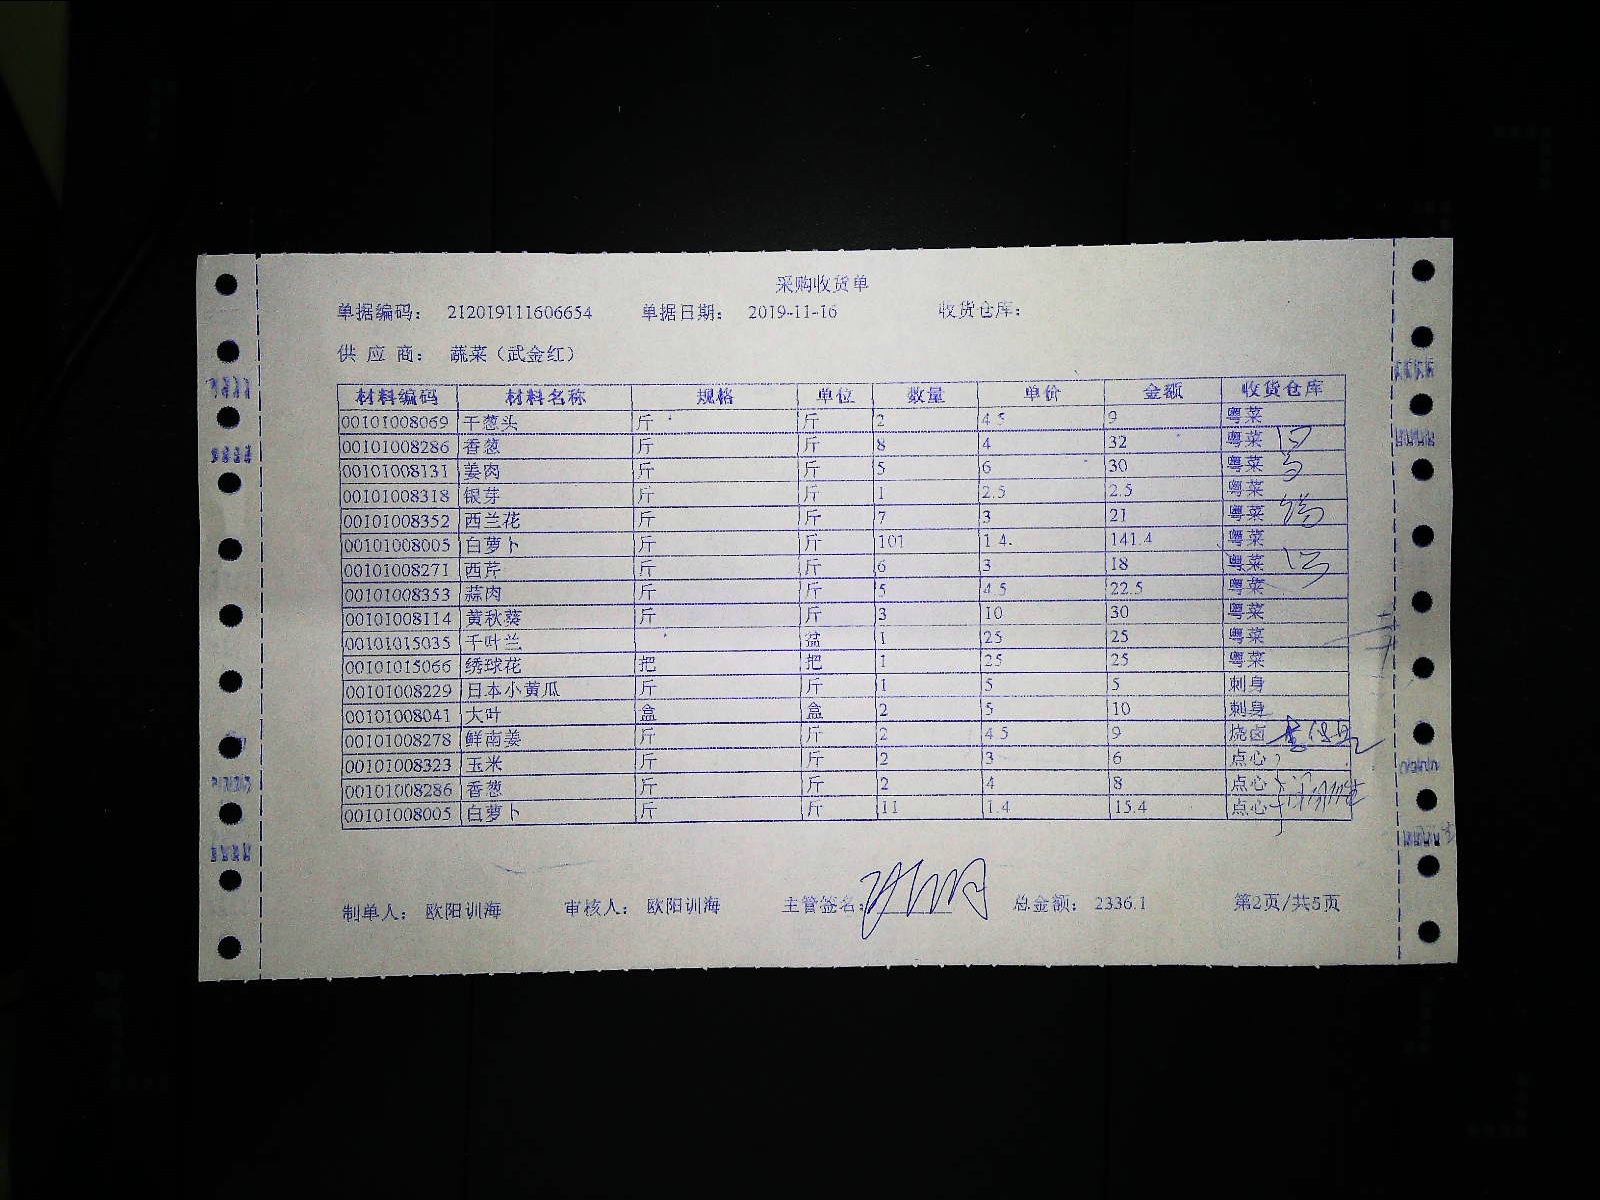 采购收货单
单据编码： 212019111606654 单据日期： 2019-11-16 收货仓库：
供 应 商： 蔬菜（武金红）
材料编码 材料名称 规格 单位 数量 单价 金额 收货仓库
00101008069 干葱头 斤 斤 2 4.5 9 粤菜
00101008286 香葱 斤 斤 8 4 32 粤菜
00101008131 姜肉 斤 斤 5 6 30 粤菜
00101008318 银芽 斤 斤 1 2.5 2.5 粤菜
00101008352 西兰花 斤 斤 7 3 21 粤菜
00101008005 白萝卜 斤 斤 101 1.4 141.4 粤菜
00101008271 西芹 斤 斤 6 3 18 粤菜
00101008353 蒜肉 斤 斤 5 4.5 22.5 粤菜
00101008114 黄秋葵 斤 斤 3 10 30 粤菜
00101015035 千叶兰 盆 1 25 25 粤菜
00101015066 绣球花 把 把 1 25 25 粤菜
00101008229 日本小黄瓜 斤 斤 1 5 5 刺身
00101008041 大叶 盒 盒 2 5 10 刺身
00101008278 鲜南姜 斤 斤 2 4.5 9 烧卤
00101008323 玉米 斤 斤 2 3 6 点心
00101008286 香葱 斤 斤 2 4 8 点心
00101008005 白萝卜 斤 斤 11 1.4 15.4 点心
制单人： 欧阳训海 审核人： 欧阳训海 主管签名： 总金额： 2336.1 第2页/共5页